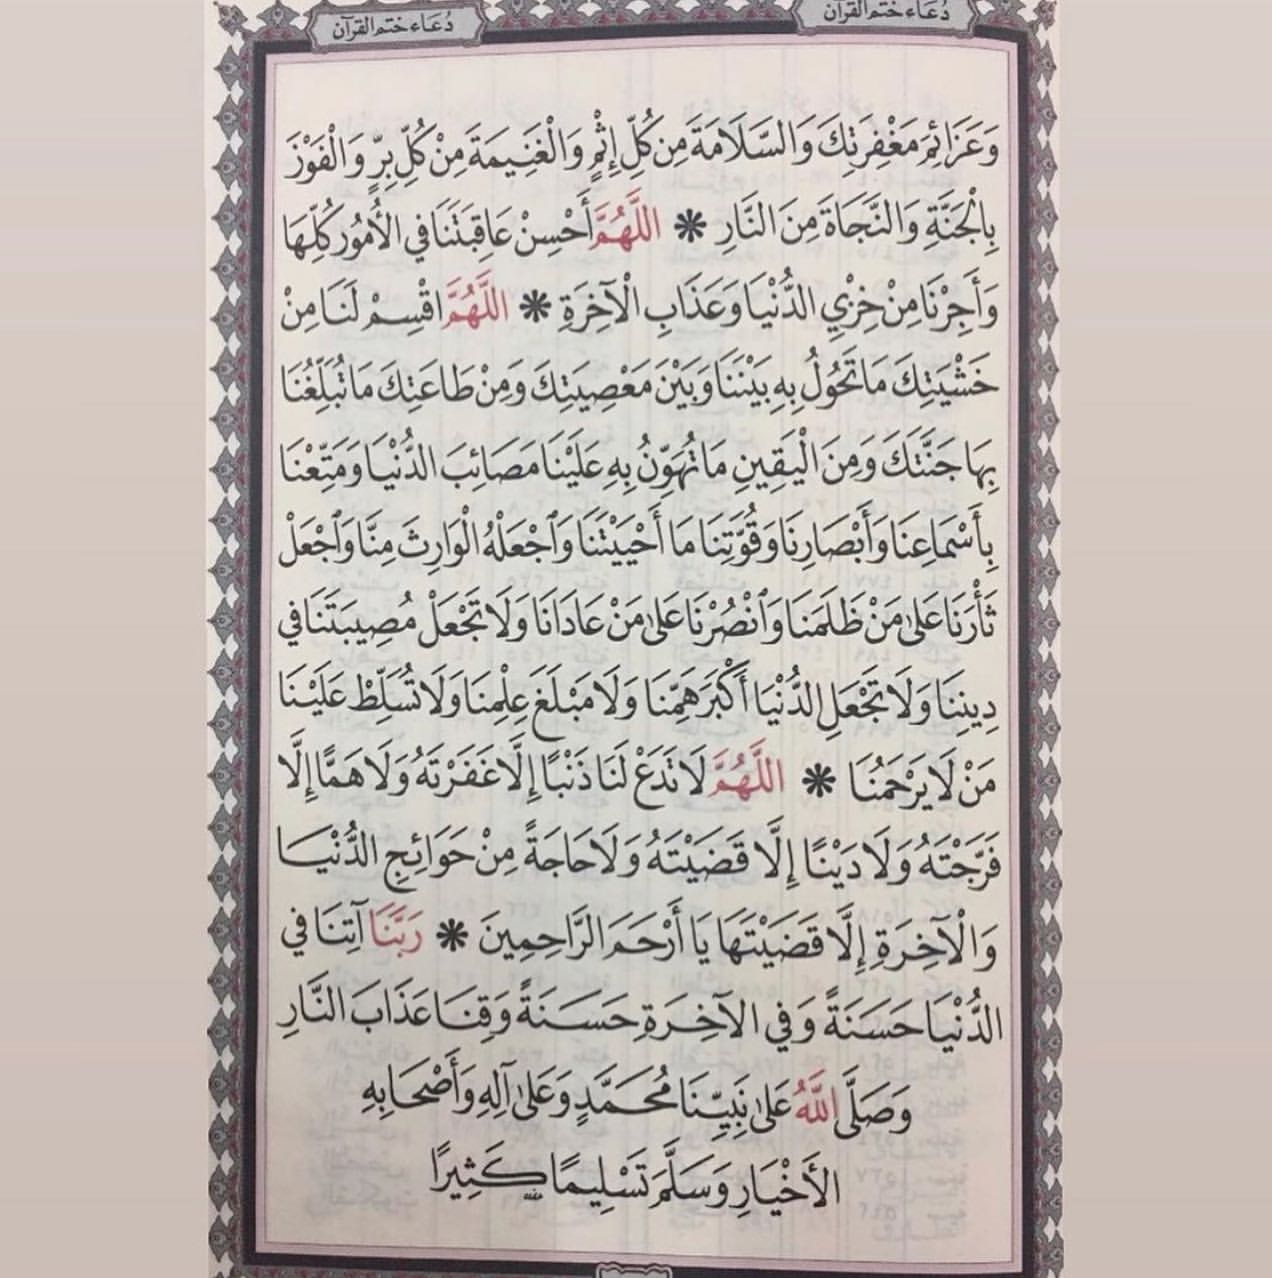 دُعَاء ختم القرآن
دُعَاء ختم القرآن
وَعَزَائِمَ مَغْفِرَتِكَ وَالسَّلَامَةَ مِن كُلِّ إِثْمٍ وَالْغَنِيمَةَ مِنْ كُلِّ بِرٍّ وَالْفَوْزَ
بِالْجَنَّةِ وَالنَّجَاةَ مِنَ النَّارِ * اللَّهُمَّ أَحْسِنْ عَاقِبَتَنَا فِي الأُمُورِ كُلِّهَا
وَأَجِرْنَا مِنْ خِزْيِ الدُّنْيَا وَعَذَابِ الْآخِرَةِ * اللَّهُمَّ اقْسِمْ لَنَا مِنْ
خَشْيَتِكَ مَا تَحُولُ بِهِ بَيْنَنَا وَبَيْنَ مَعْصِيَتِكَ وَمِنْ طَاعَتِكَ مَا تُبَلِّغُنَا
بِهَا جَنَّتَكَ وَمِنَ الْيَقِينِ مَا تُهَوِّنُ بِهِ عَلَيْنَا مَصَائِبَ الدُّنْيَا وَمَتِّعْنَا
بِأَسْمَاعِنَا وَأَبْصَارِنَا وَقُوَّتِنَا مَا أَحْيَيْتَنَا وَٱجْعَلْهُ الْوَارِثَ مِنَّا وَٱجْعَلْ
ثَأْرَنَا عَلَى مَنْ ظَلَمَنَا وَٱنْصُرْنَا عَلَى مَنْ عَادَانَا وَلَا تَجْعَلْ مُصِيبَتَنَا فِي
دِينِنَا وَلَا تَجْعَلِ الدُّنْيَا أَكْبَرَ هَمِّنَا وَلَا مَبْلَغَ عِلْمِنَا وَلَا تُسَلِّطْ عَلَيْنَا
مَنْ لَا يَرْحَمُنَا * اللَّهُمَّ لَا تَدَعْ لَنَا ذَنْبًا إِلَّا غَفَرْتَهُ وَلَا هَمًّا إِلَّا
فَرَّجْتَهُ وَلَا دَيْنًا إِلَّا قَضَيْتَهُ وَلَا حَاجَةً مِنْ حَوَائِجِ الدُّنْيَا
وَالْآخِرَةِ إِلَّا قَضَيْتَهَا يَا أَرْحَمَ الرَّاحِمِينَ * رَبَّنَا آتِنَا فِي
الدُّنْيَا حَسَنَةً وَفِي الآخِرَةِ حَسَنَةً وَقِنَا عَذَابَ النَّارِ
وَصَلَّى اللَّهُ عَلَى نَبِيِّنَا مُحَمَّدٍ وَعَلَى آلِهِ وَأَصْحَابِهِ
الأَخْيَارِ وَسَلَّمَ تَسْلِيمًا كَثِيرًا